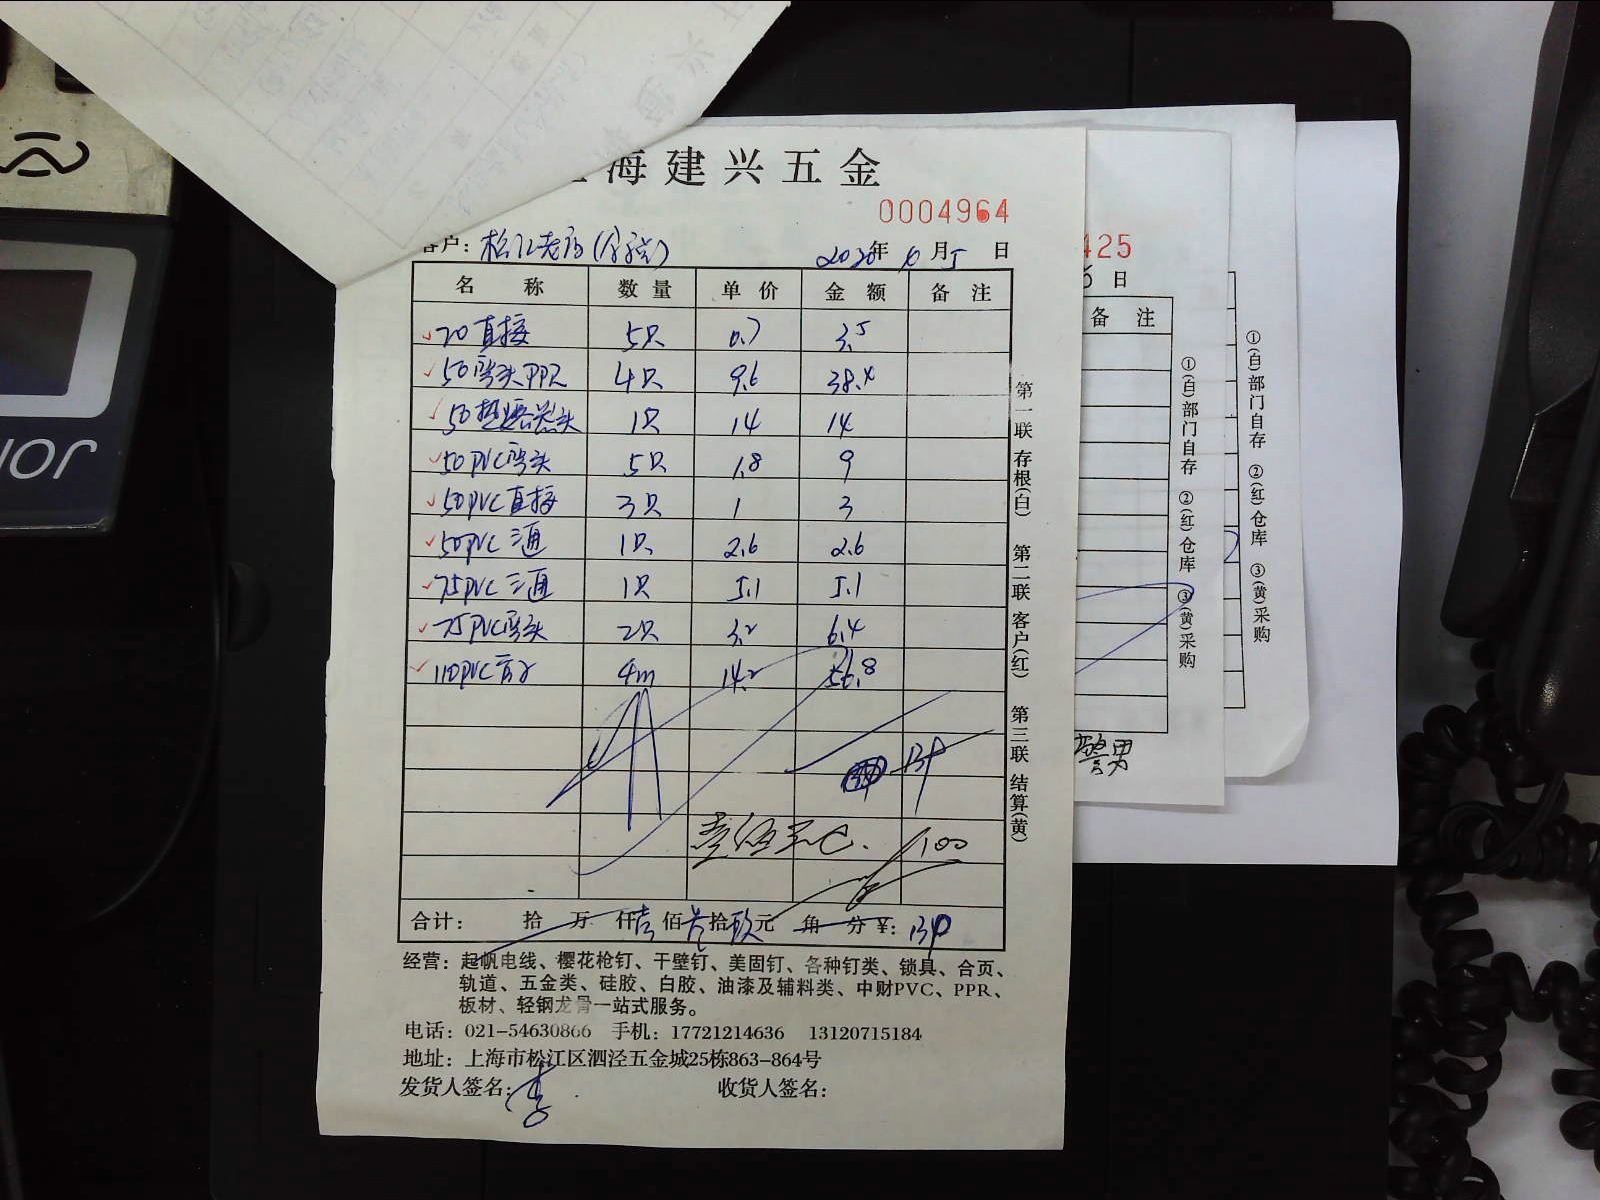 海建兴五金
0004964
客户：松江老房(
2020年6月5日
名称 数量 单价 金额 备注
20直接 5只 0.7 3.5
50弯头PPR 4只 9.6 38.4
50热熔 头 1只 14 14
50PVC弯头 5只 1.8 9
50PVC直接 3只 1 3
50PVC三通 1只 2.6 2.6
75PVC三通 1只 5.1 5.1
75PVC弯头 2只 3.2 6.4
110PVC管 4m 14.2 56.8
100
合计： 拾 万 仟壹佰 拾玖元 角 分 ¥：139
第一联 存根(白) 第二联 客户(红) 第三联 结算(黄)
经营：起帆电线、樱花枪钉、干壁钉、美固钉、各种钉类、锁具、合页、
轨道、五金类、硅胶、白胶、油漆及辅料类、中财PVC、PPR、
板材、轻钢龙骨一站式服务。
电话：021-54630866 手机：17721214636 13120715184
地址：上海市松江区泗泾五金城25栋863-864号
发货人签名：李 收货人签名：
425
5日
备注
①(白)部门自存 ②(红)仓库 ③(黄)采购
①(白)部门自存 ②(红)仓库 ③(黄)采购